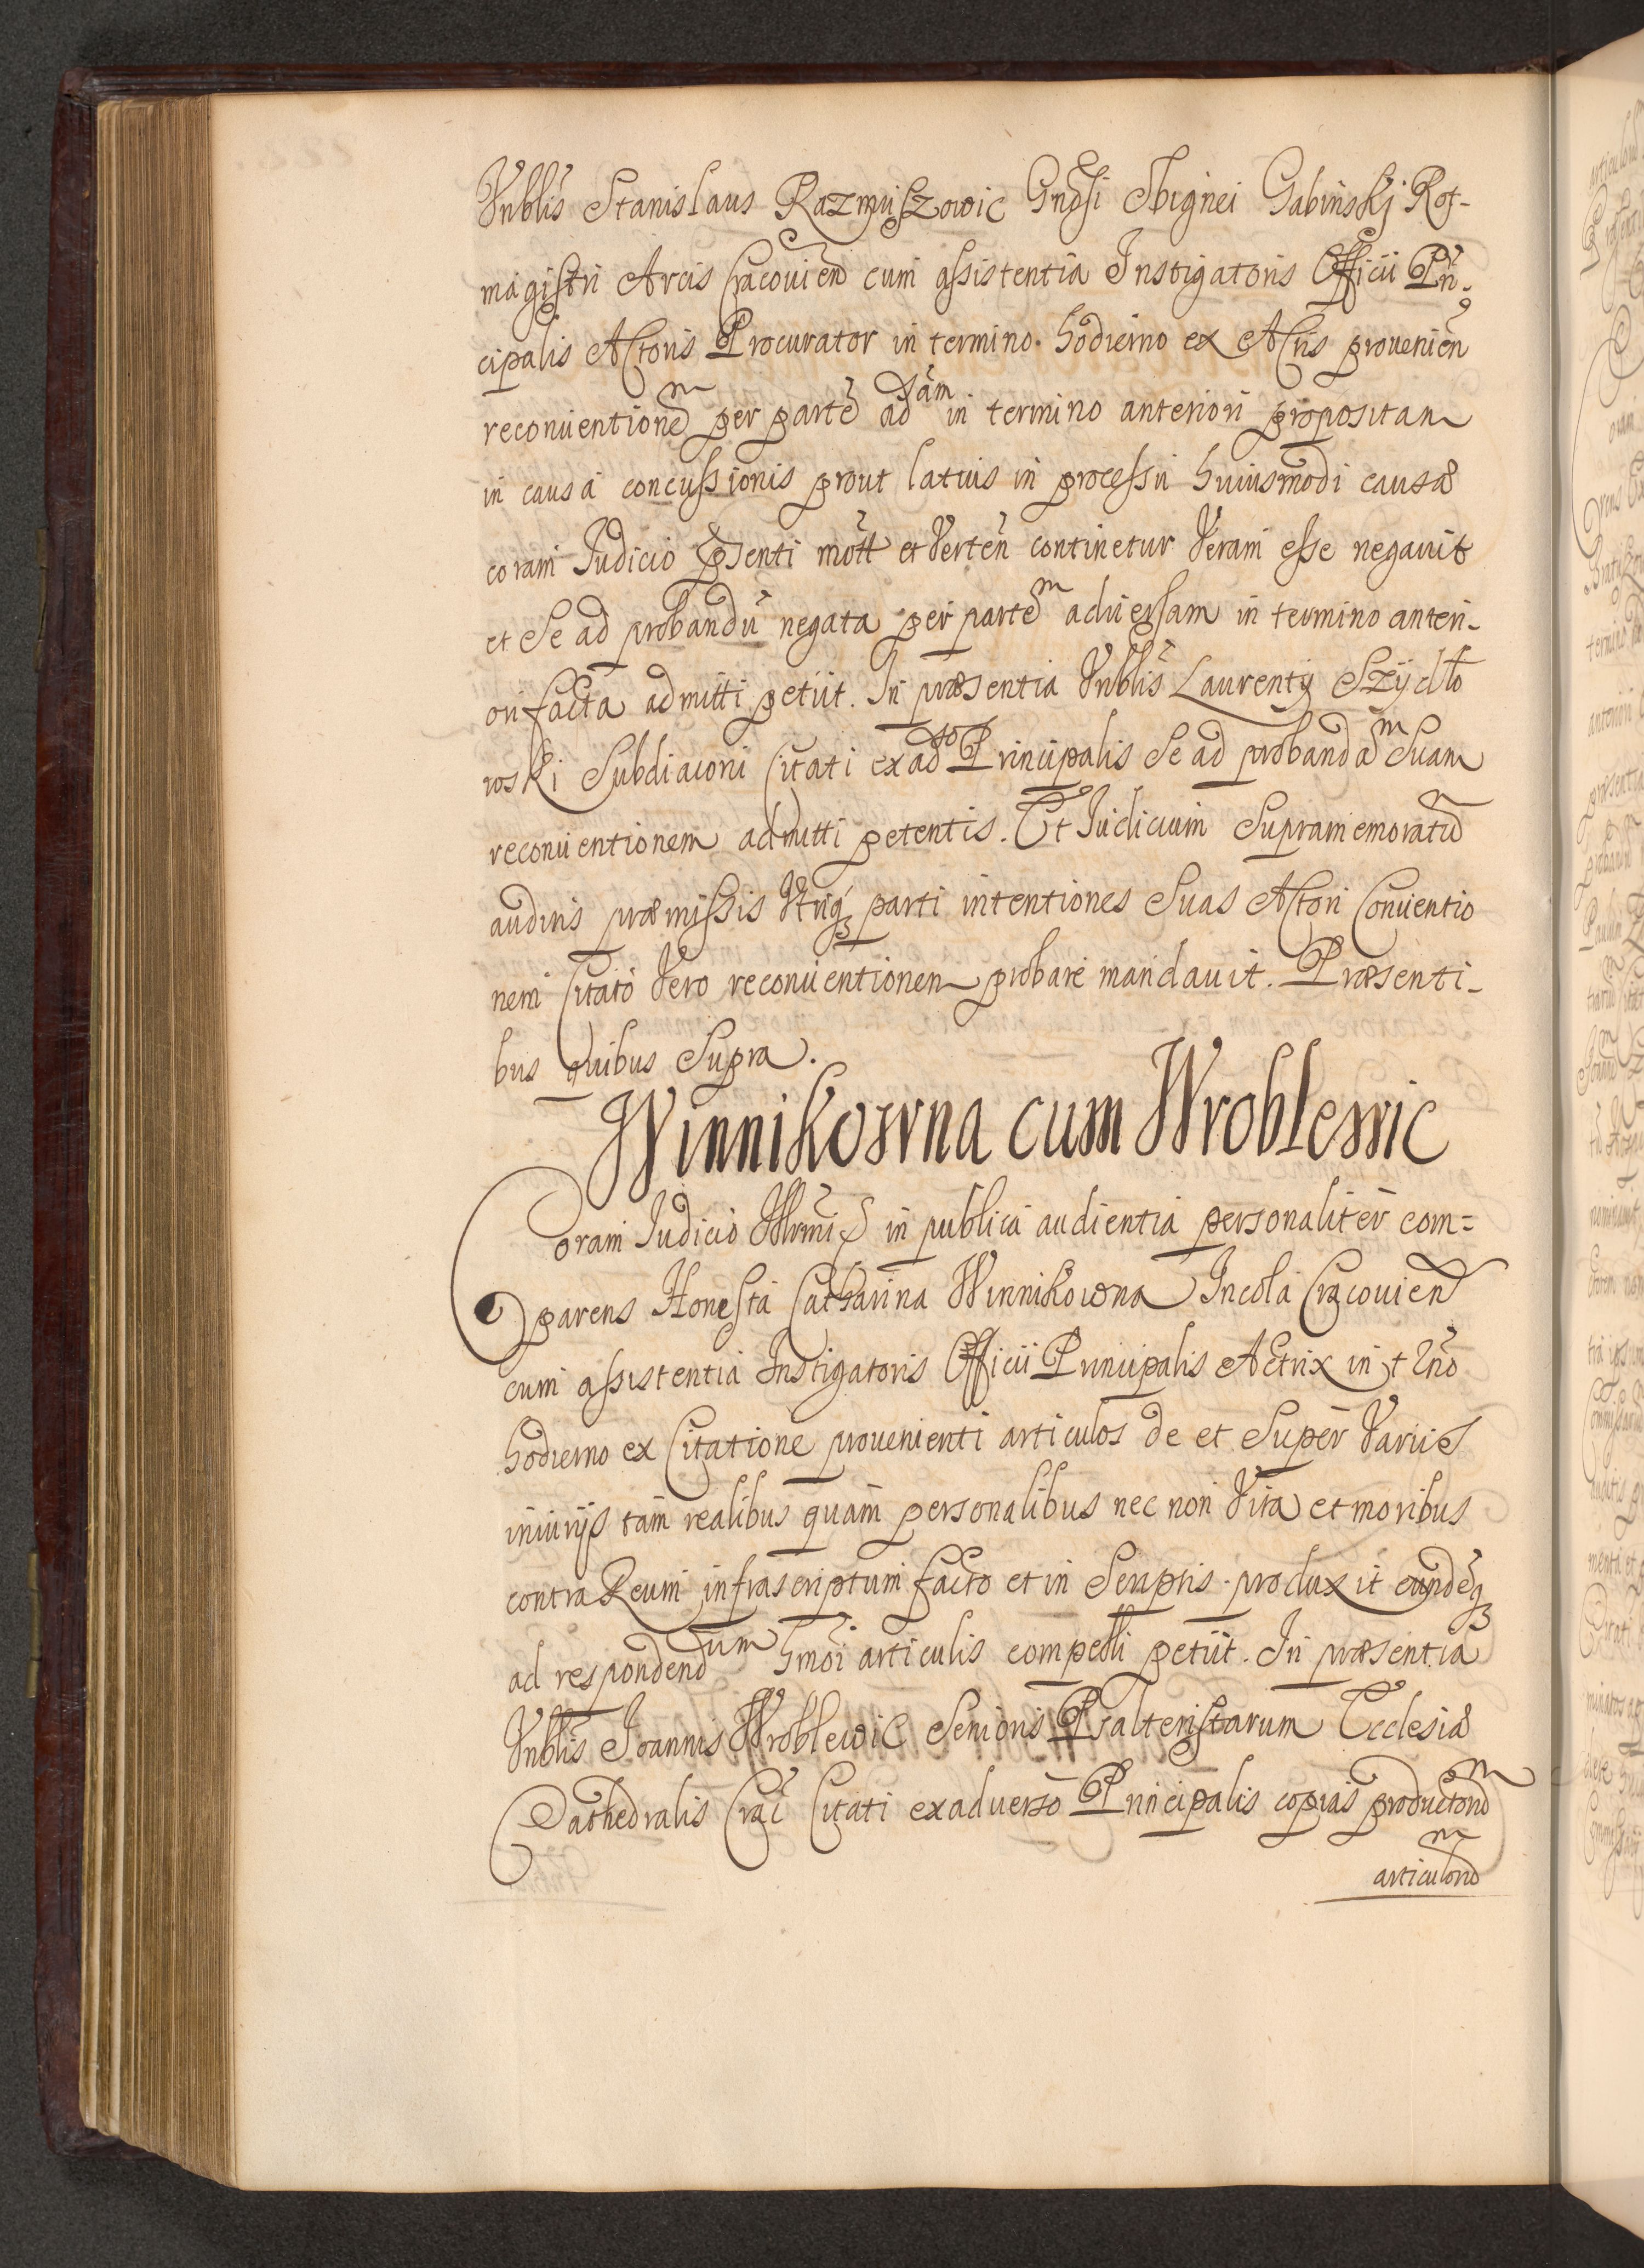 Vnblis Stanislaus Razmuszowic Gnosi Sbignei Gabinskj Rot-
magistri Arcis Cracouien cum assistentia Instigatoris Officii Prin-
cipalis Actoris Procurator in termino hodierno ex Actis prouenien
reconuentionem per parte adsam in termino anteriori propositam
in causa concussionis prout latius in processu huiusmodi causæ
coram Judicio pñsenti mott et Verten continetur Veram esse negauit
et Se ad probandū negata per partem aduersam in termino anteri-
ori facta admitti petiit. In præsentia Vnblis Laurentij Szydło
wski Subdiaconi Citati ex adso Principalis Se ad probandam Suam
reconuentionem admitti petentis. Et Iudicium Supramemoratum
auditis præmissis Vtriq3 parti intentiones Suas Actori Conuentio
nem Citato Vero reconuentionem probare mandauit. Præsenti-
bus quibus Supra.
Winnikowna cum Wroblewic
Coram Iudicio in publica audientia personaliter com=
parens Honesta Catharina Winnikowna Incola Cracouien
cum assistentia Instigatoris Officii Principalis Actrix in tno
hodierno ex Citatione prouenienti articulos de et Super Variis
iniurijs tam realibus quam personalibus nec non Vita et moribus
contra Reum infrascriptum facto et in Scriptis produxit eundēq3
ad respondendum hmoi articulis compelli petiit. In præsentia
Vnblis Joannis Wroblewic Senioris Psalteristarum Ecclesiæ
Cathedralis Craē Citati ex aduerso Principalis copias productorum
articulorum